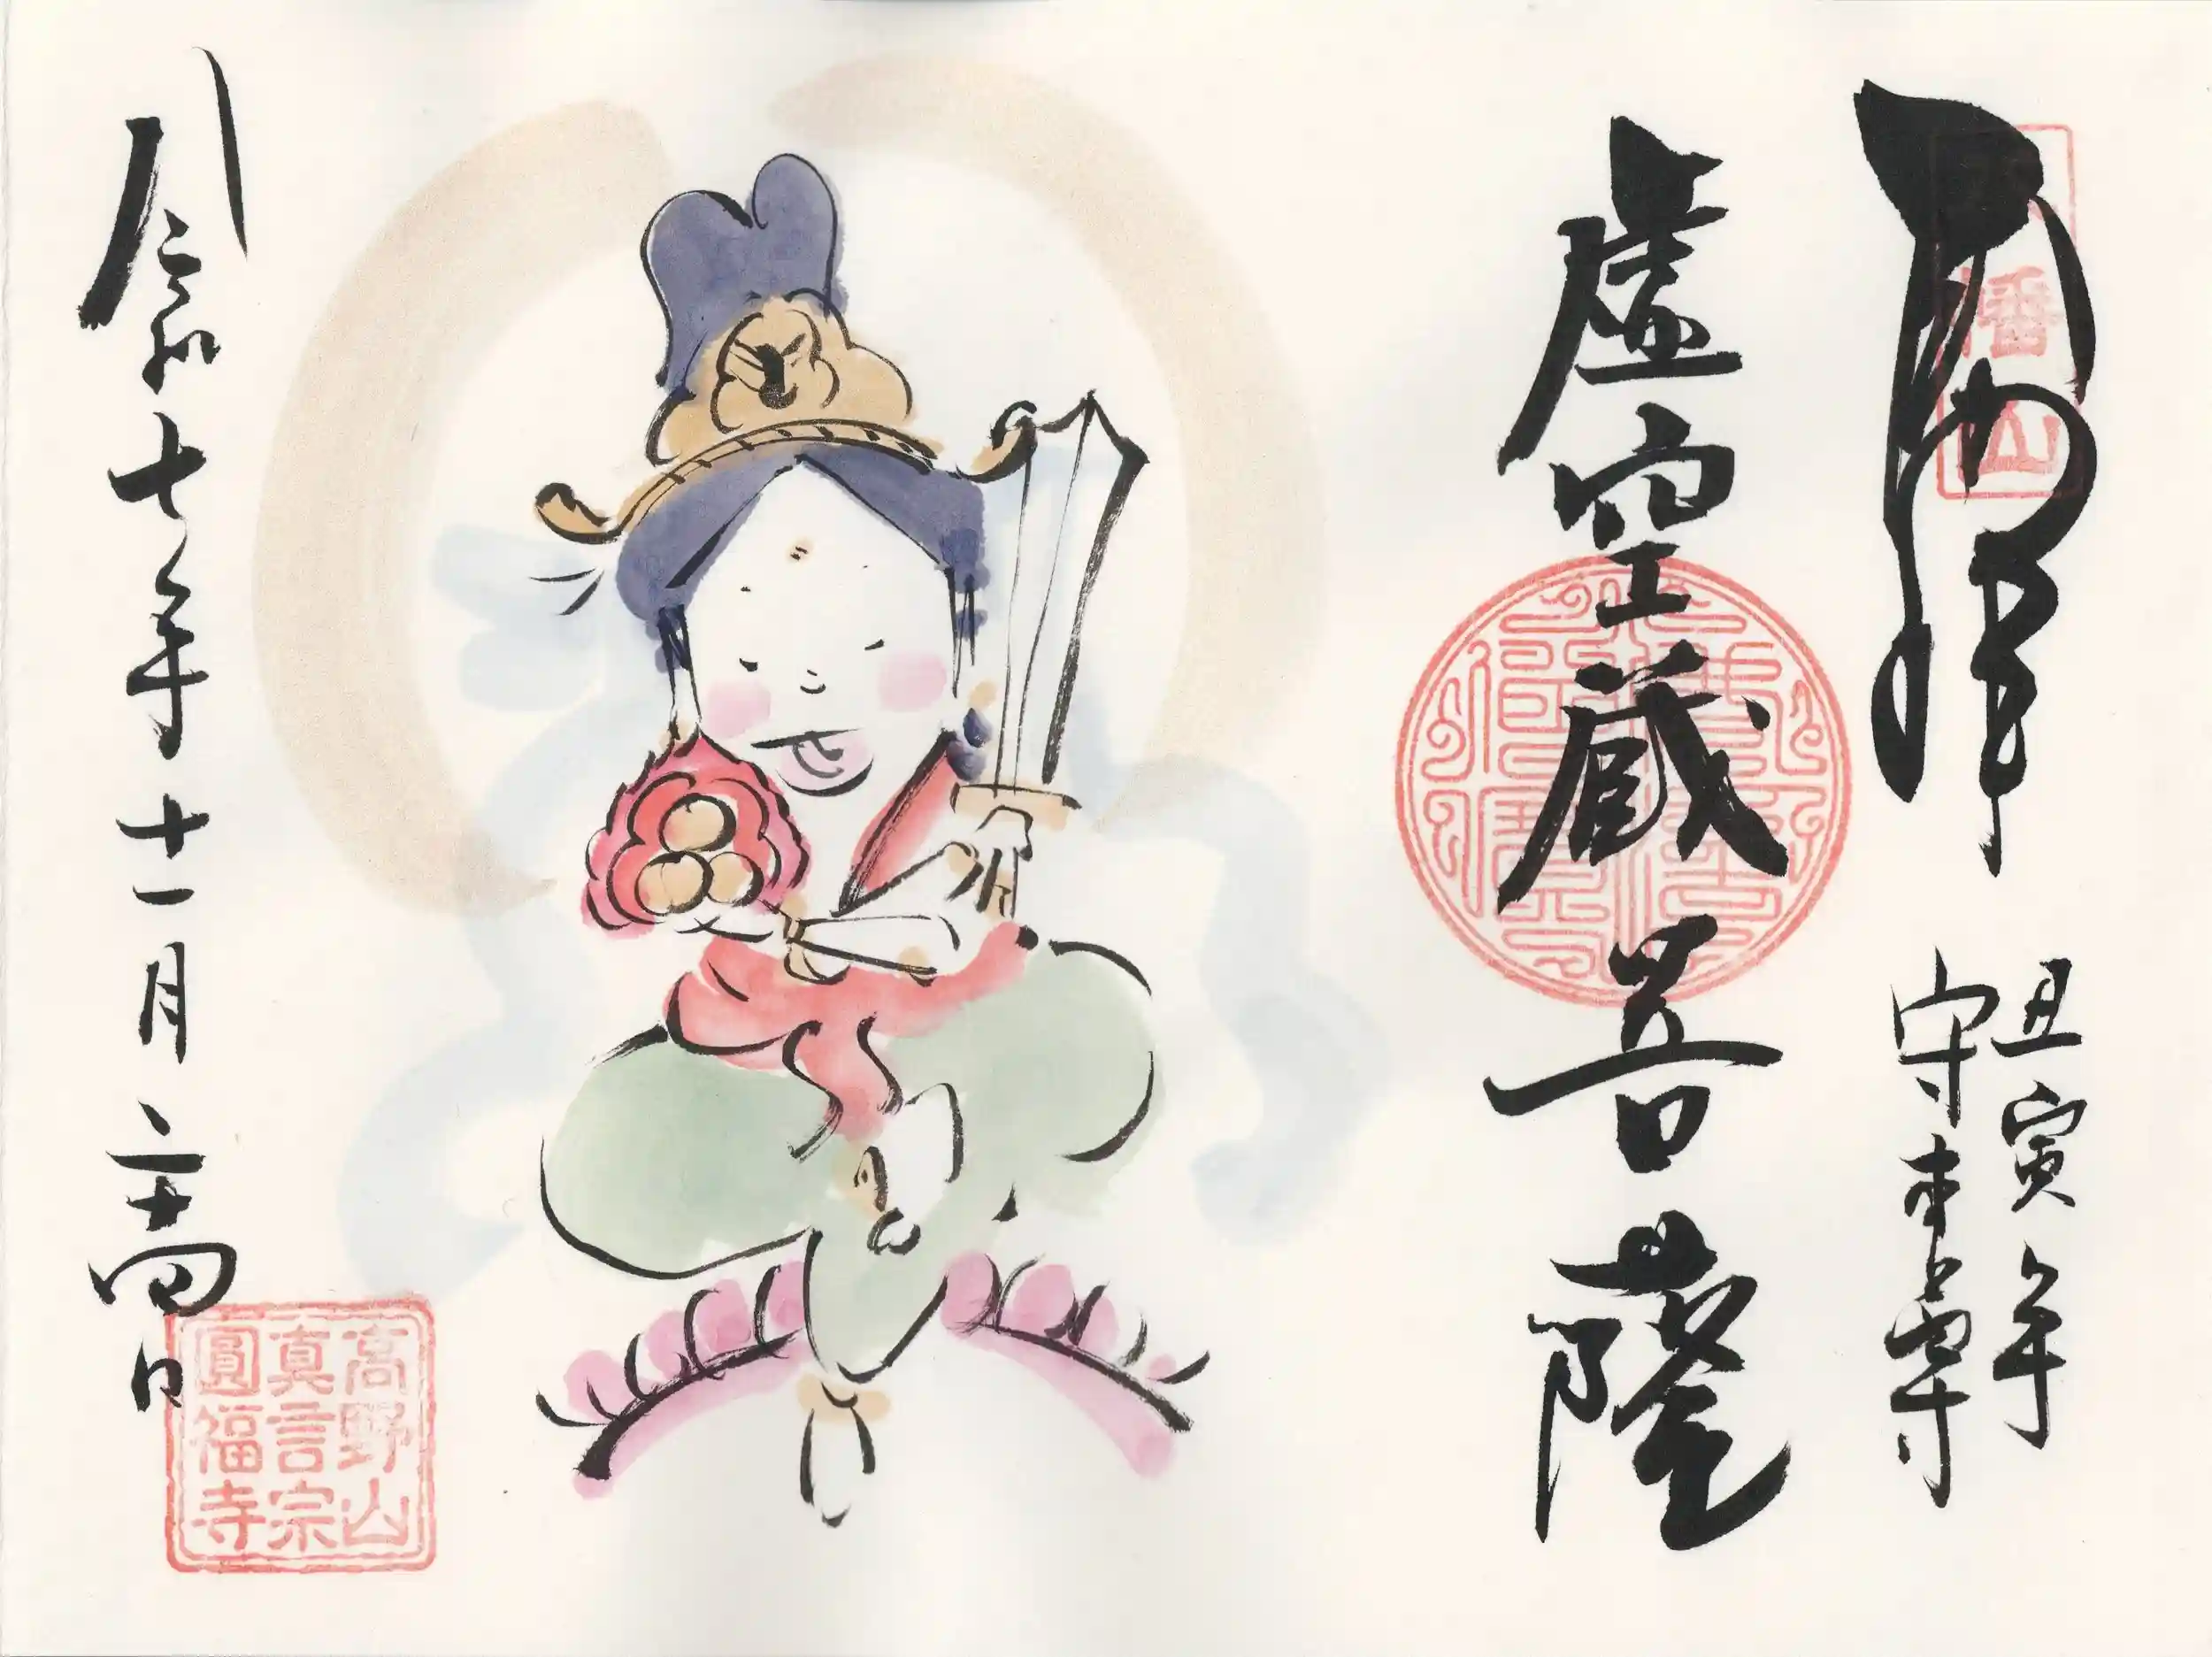 奉拝
丑寅年
守本尊
虚空蔵菩薩
令和七年十一月二十四日
幡山
高野山
真言宗
圓福寺